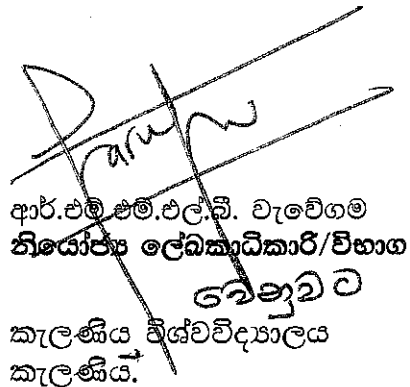 ආර්.එම්.එම්.එල්.බී. වැවේගම
නියෝජ්‍ය ලේඛකාධිකාරි/විභාග
වෙනුවට
කැලණිය විශ්වවිද්‍යාලය
කැලණිය.